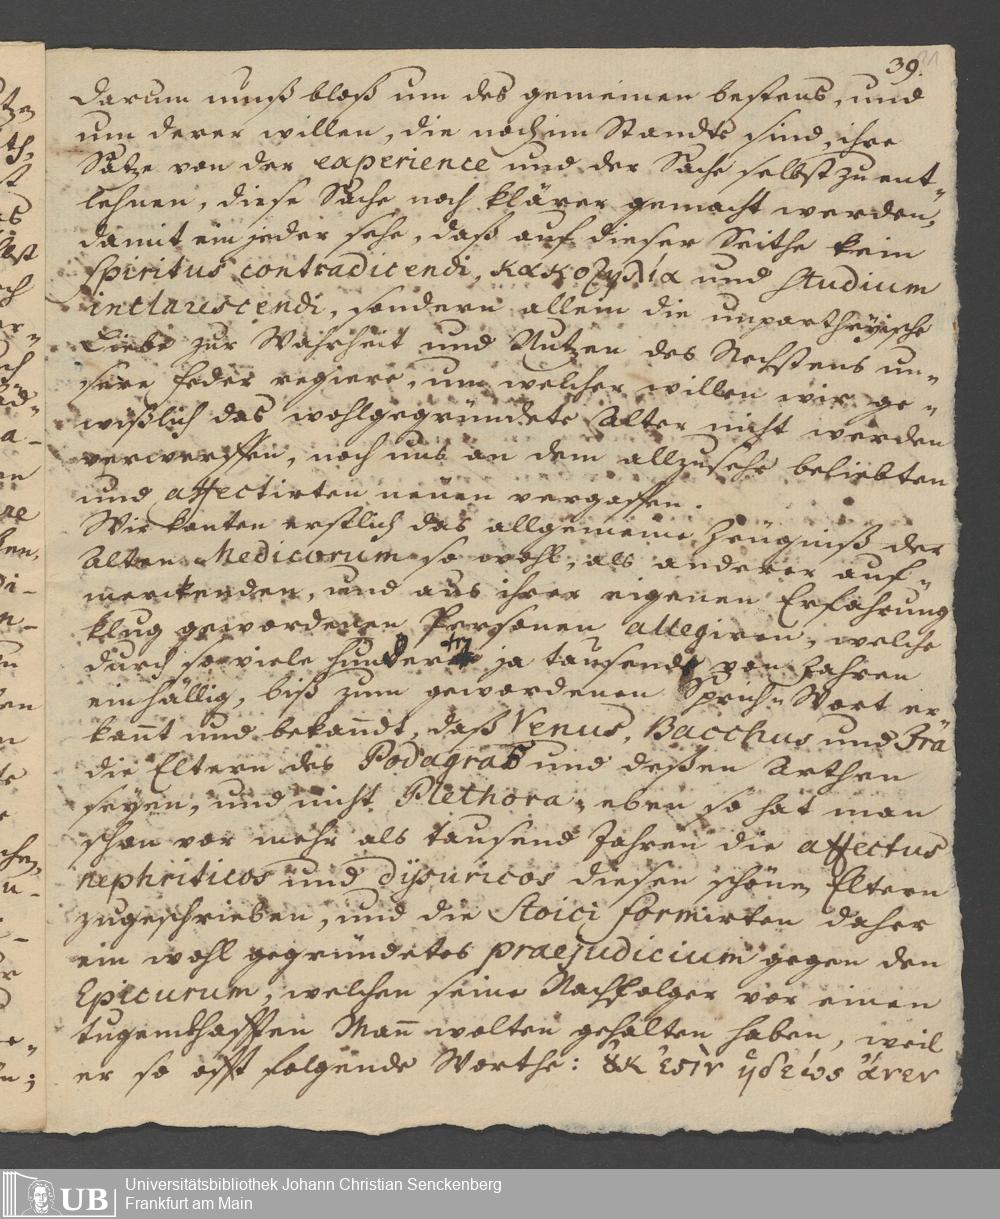 39.
darum muß bloß um des gemeinen bestens, und
um derer willen, die noch im Stande sind, ihre
Sätze von der experience und der Sache selbst zu ent-
lehnen, diese Sache noch klärer gemacht werden,
damit ein jeder sehe, daß auf dieser Seithe kein
spiritus contradicendi, κακοζηλία und studium
inclarescendi, sondern allein die unpartheyische
Liebe zur Wahrheit und Nutzen des Nechstens un-
sere Feder regiere, um welcher willen wir ge-
wißlich das wohlgegründete Alter nicht werden
verwerffen, noch uns an dem allzusehr beliebten
und affectirten neuen vergaffen.
Wir konten erstlich das allgemeine Zeugniß der
alten Medicorum so wohl, als anderer auf-
merckenden, und aus ihrer eigenen Erfahrung
klug gewordenen Personen allegiren, welche
durch so viele hundert ja tausende von Jahren
einhällig, biß zum gewordenen Sprich-Wort er
kannt und bekandt, daß Venus, Bacchus und Ira
die Eltern des Podagras und deßen Arthen
seyen, und nicht Plethora, eben so hat man
schon vor mehr als tausend Jahren die affectus
nephriticos und dysuricos diesen schönen Eltern
zugeschrieben, und die Stoici formirten daher
ein wohl gegründetes praejudicium gegen den
Epicurum, welchen seine Nachfolger vor einen
tugendhafften Mann wolten gehalten haben, weil
er so offt folgende Worthe: ȣκ ἐστιν ἡδέως ἄνεν
Universitätsbibliothek Johann Christian Senckenberg
UB Frankfurt am Main